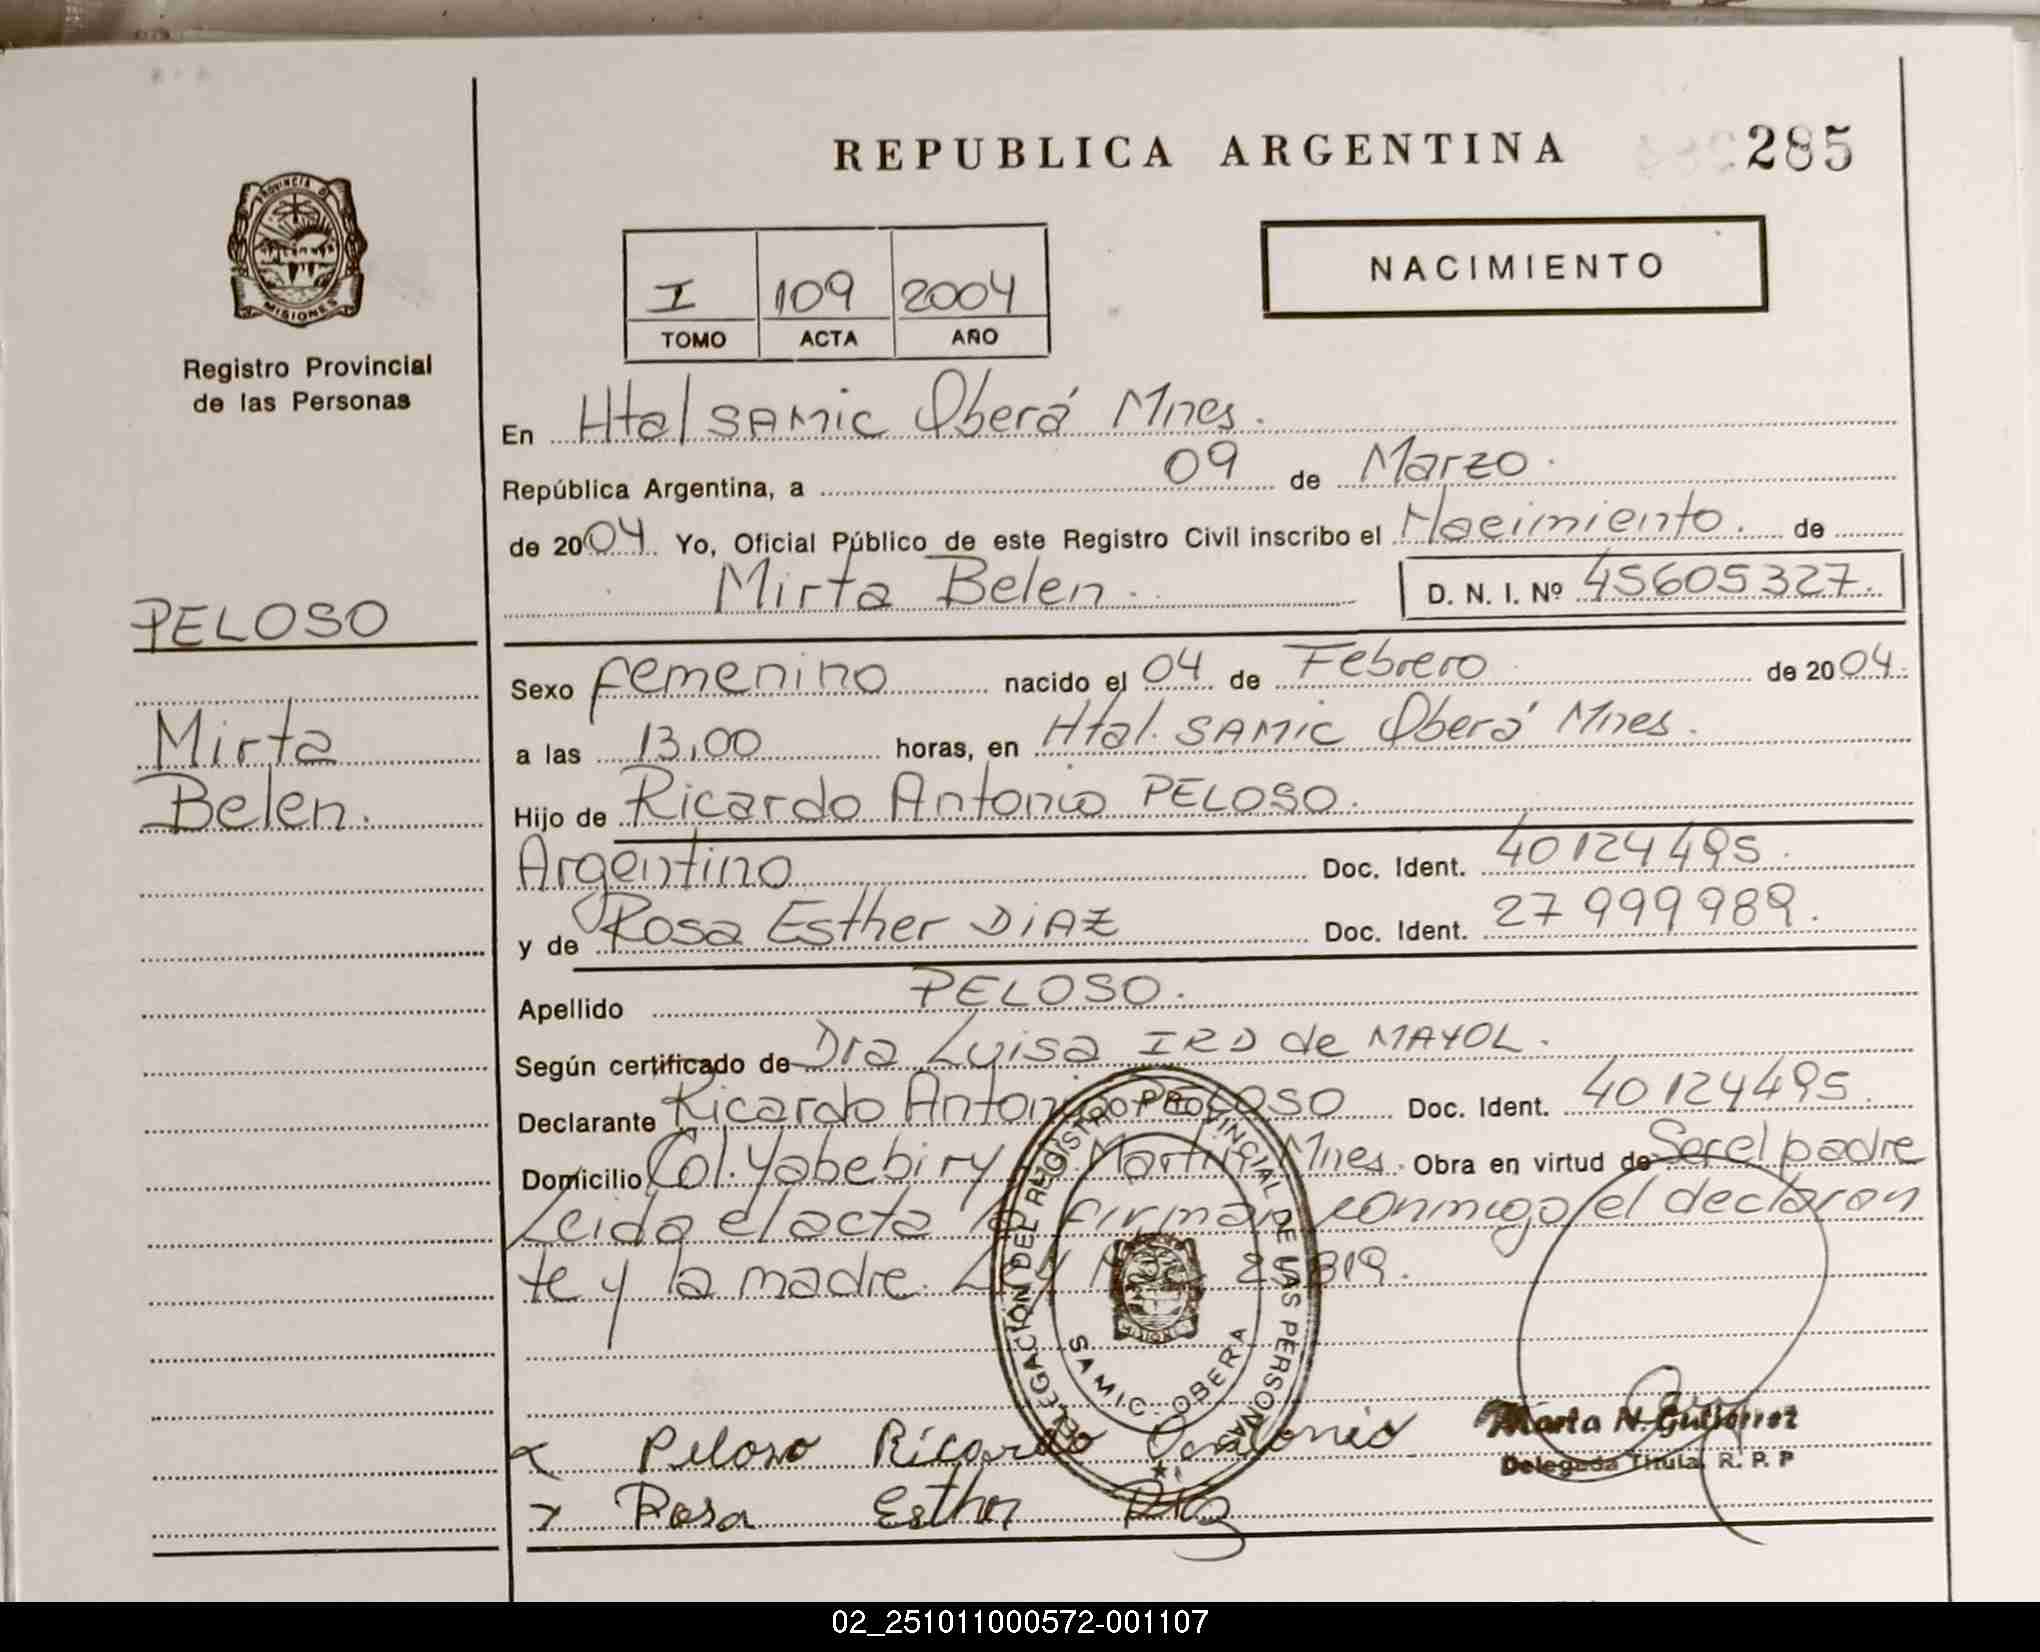 REPUBLICA ARGENTINA 285
PROVINCIA DE
MISIONES
Registro Provincial
de las Personas
I 109 2004
TOMO ACTA AÑO
NACIMIENTO
En Htal SAMIC Oberá Mnes.
República Argentina, a 09 de Marzo.
de 2004. Yo, Oficial Público de este Registro Civil inscribo el Nacimiento. de
Mirta Belen. D. N. I. Nº 45605327.
PELOSO
Mirta
Belen.
Sexo femenino nacido el 04 de Febrero de 2004.
a las 13,00 horas, en Htal. SAMIC Oberá Mnes.
Hijo de Ricardo Antonio PELOSO.
Argentino Doc. Ident. 40124495.
y de Rosa Esther DIAZ Doc. Ident. 27999989.
Apellido PELOSO.
Según certificado de Dra Luisa IRD de MAYOL.
Declarante Ricardo Antonio PELOSO Doc. Ident. 40124495.
Domicilio Col. Yabebiry Martir Mnes. Obra en virtud de Ser el padre
Leida el acta la firman conmigo el declaran
te y la madre. 25819.
DELEGACION DEL REGISTRO PROVINCIAL DE LAS PERSONAS
SAMIC - OBERA
Peloso Ricardo Antonio
Rosa Esther Diaz
Marta N. Gutierrez
Delegada Titular R. P. P
02_251011000572-001107